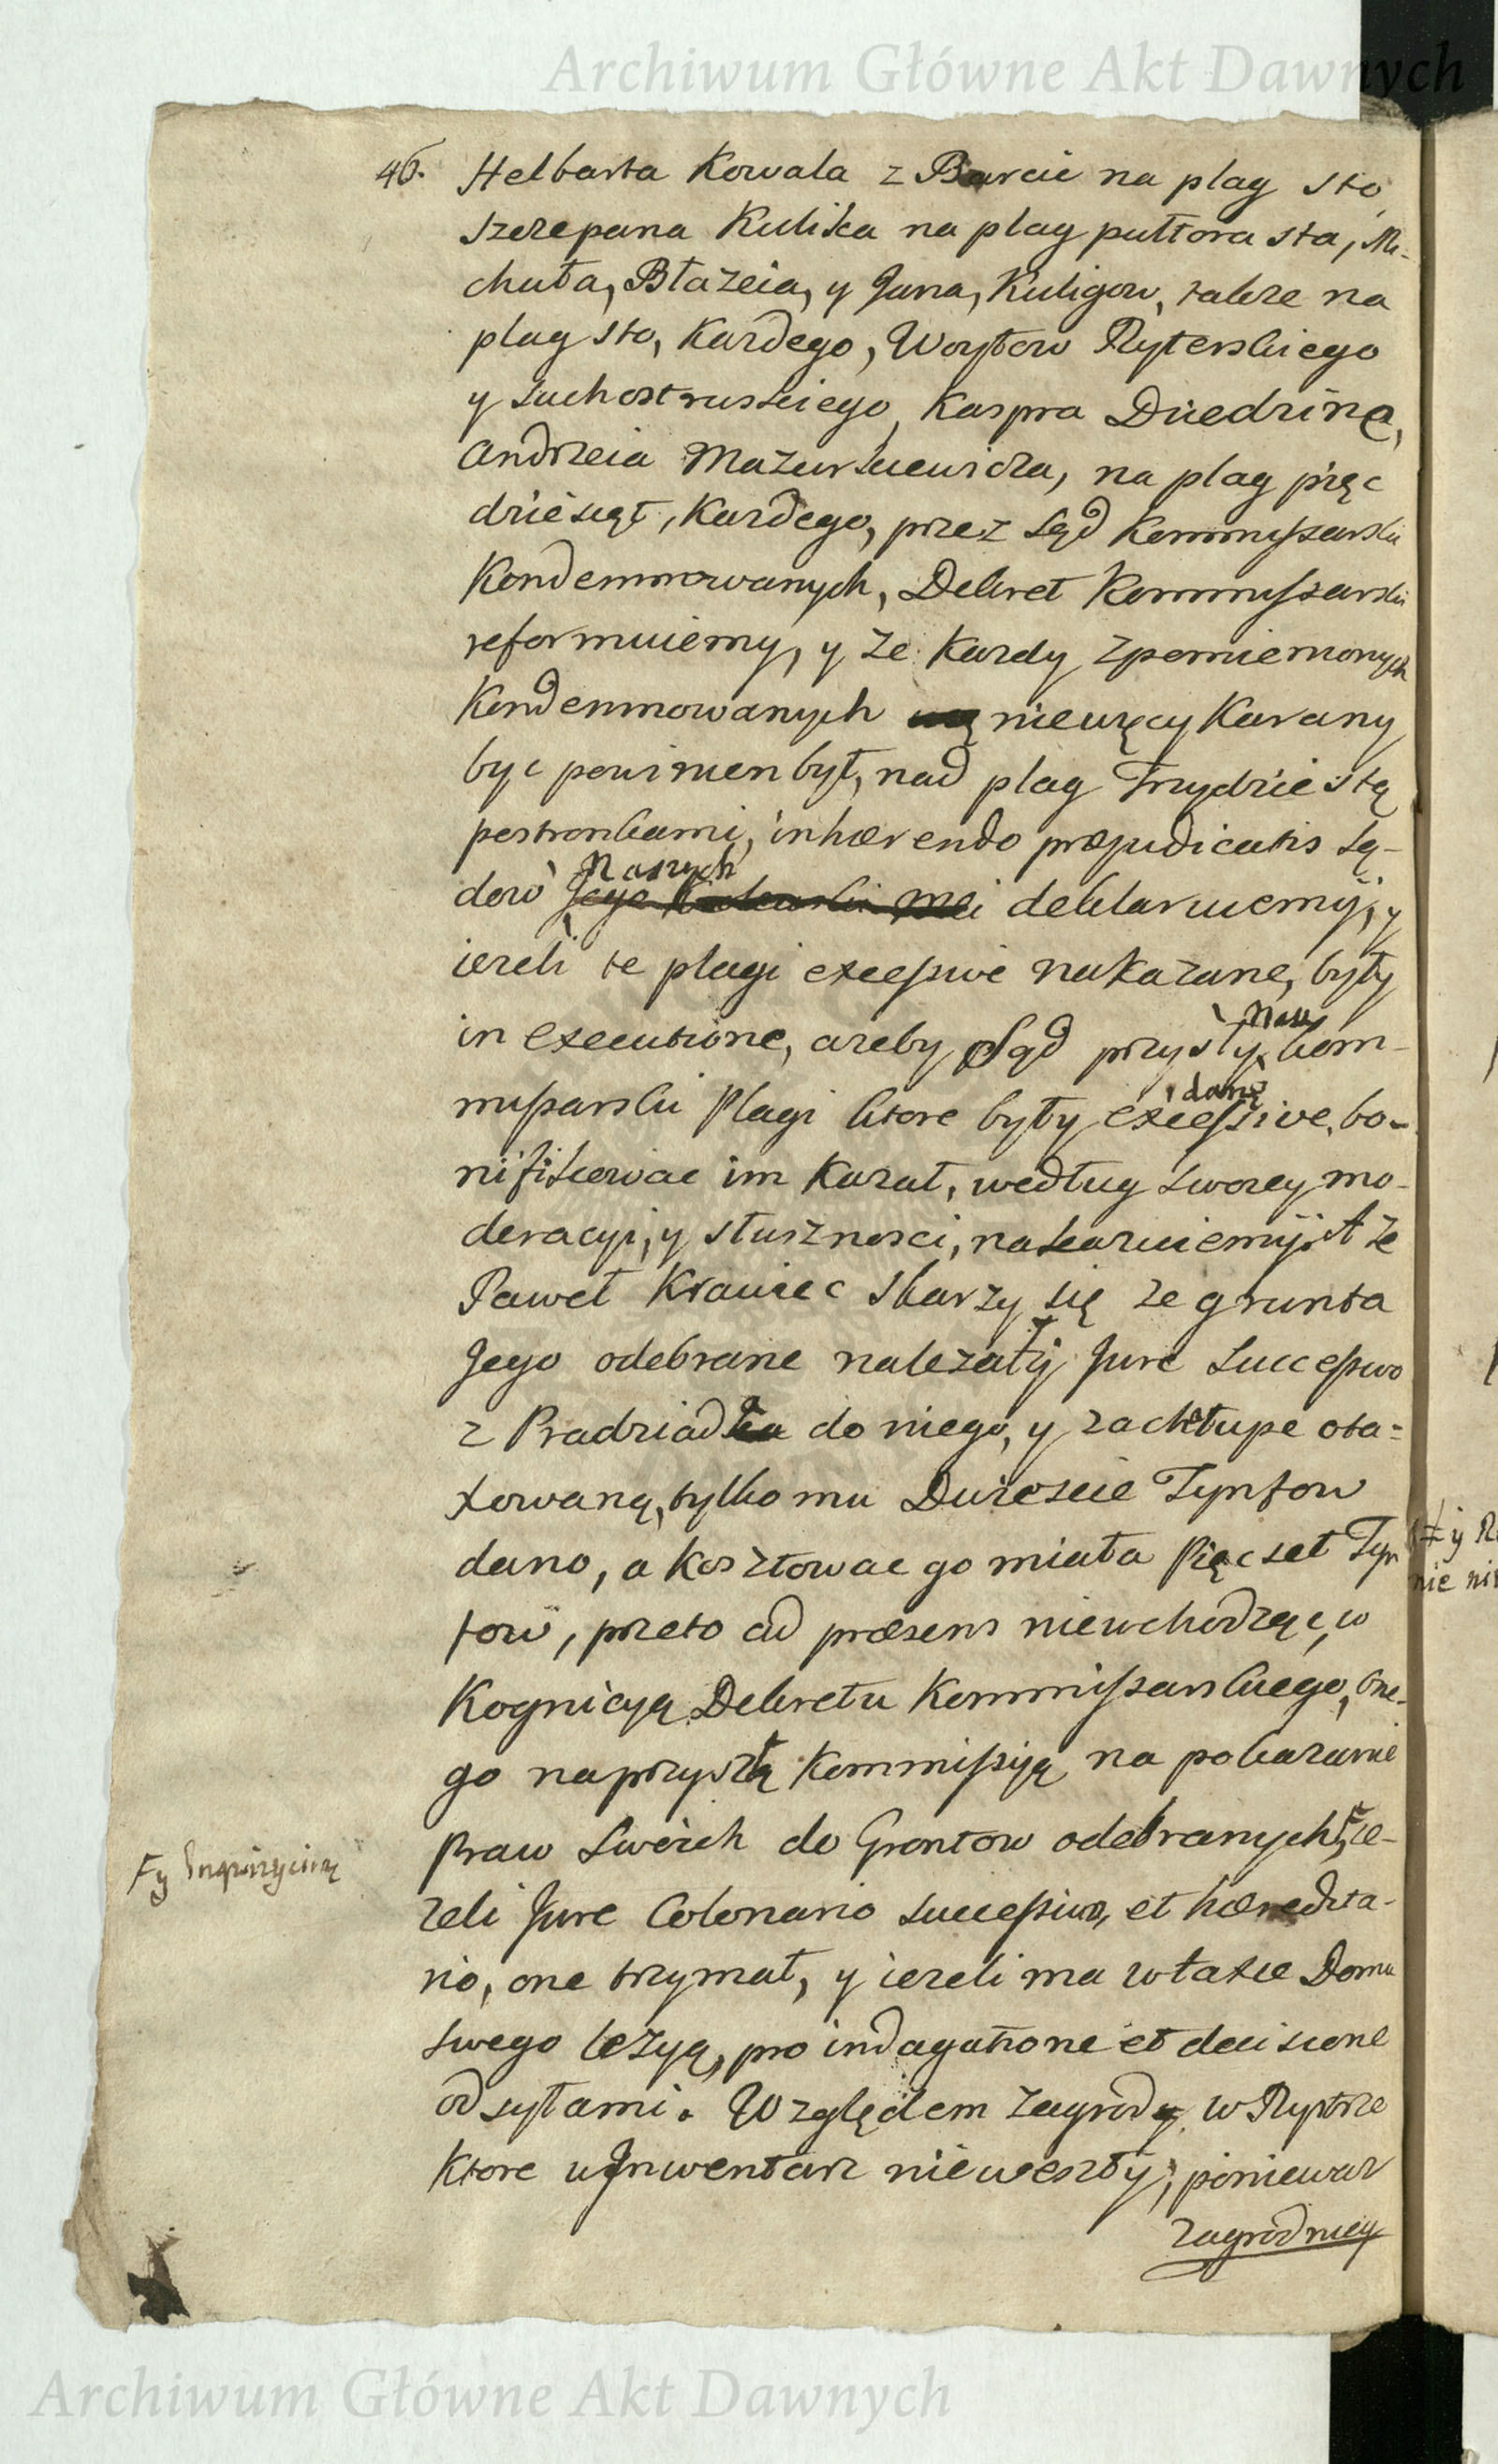 Archiwum Główne Akt Dawnych
46. Helbarta Kowala z Barcic na plag sto,
szczepana Kulika na plag pułtora sta, Mi-
chała, Błazeia, y Jana, Kuligow, takze na
plag sto, Kazdego, Woytow Ryterskiego
y suchostruskiego, Kaspra Dziedzinę,
Andrzeia Mazurkiewicza, na plag pięc
dziesiąt, Kazdego, przez sąd Kommissarski
Kondemnowanych, Dekret Kommissarski
reformuiemy, y ze Kazdy zpomienionych
Kondemnowanych niewięcy Karany
byc powinien był, nad plag Trzydziestą
postronkami, inhærendo præjudicatis Są-
dow Naszych deklaruiemÿ, y
iezeli te plagi excessive nakazane, były
in executione, azeby Sąd przyszły Nasz kom-
missarski Plagi ktore były excessive dane, bo-
nifikowac im Kazał, według swoiey mo-
deracyi, y słusznosci, nakazuiemÿ. A ze
Paweł Krawiec skarzy się ze grunta
Jego odebrane należałÿ Jure Successivo
z Pradziada do niego, y za chałupe ota=
xowaną, tylko mu Dwiescie Tynfow
dano, a kosztowac go miała Pięcset Tyn
fow, przeto ad præsens niewchodząc, w
Kognicyą Dekretu Kommissarskiego, one-
go naprzyszłą Kommissyją na pokazanie
Praw Swoich do Gruntow odebranych, Ⅎ ie-
zeli Jure Colonario successivo, et hæredita-
rio, one trzymał, y iezeli ma w taxie Domu
swego lezyą, pro indagatione et decisione
odsyłami. Względem Zagrody w Rytrze
Ktore w Jnwentarz nieweszłÿ, poniewaz
zagrodnicy
Ⅎ y Inquizycią
ÿ
nie
Archiwum Główne Akt Dawnych